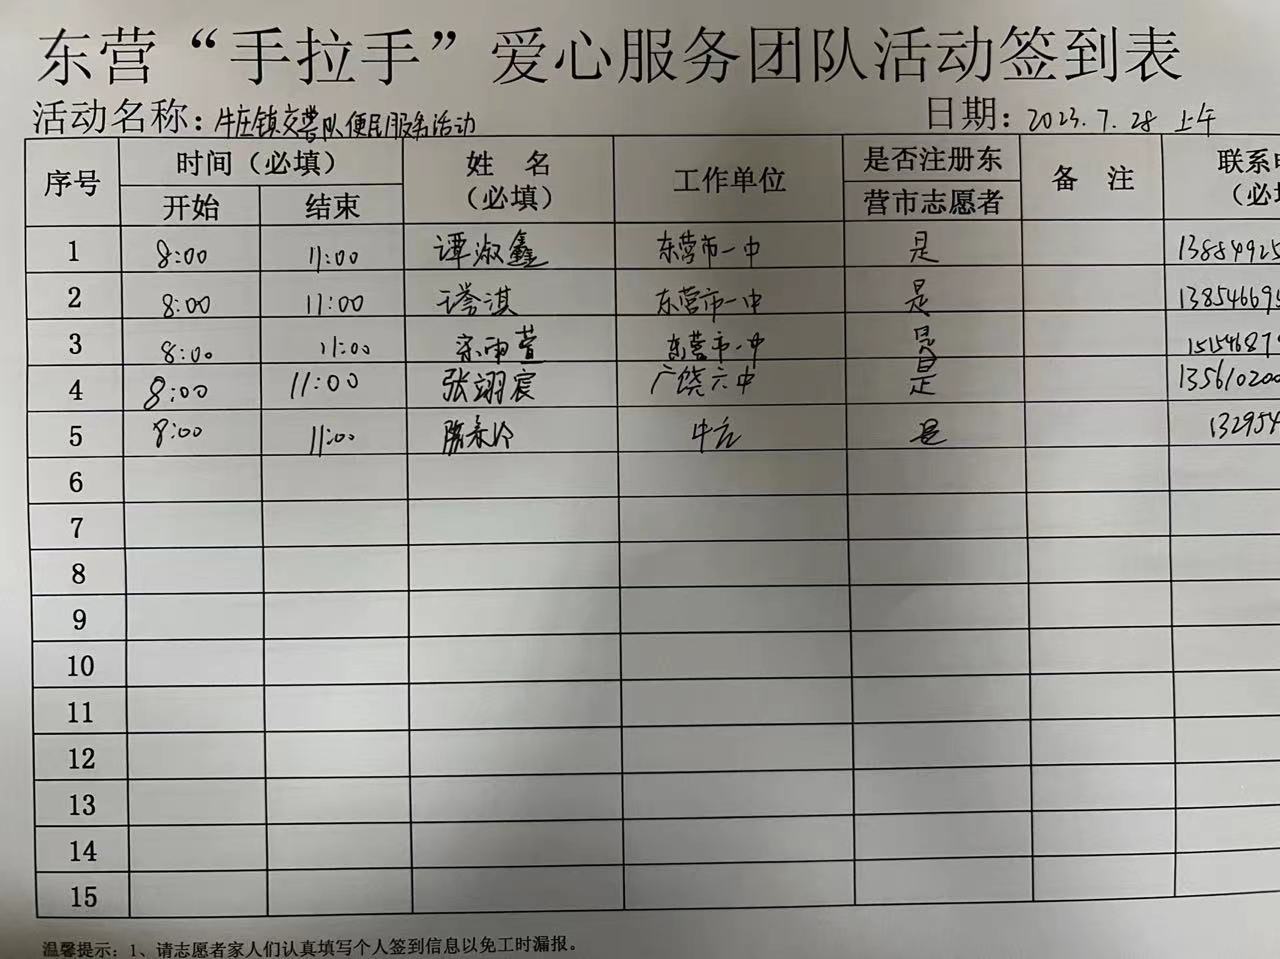 东营“手拉手”爱心服务团队活动签到表
活动名称：牛庄镇交警队便民服务活动 日期：2023.7.28 上午
序号 时间（必填） 姓 名（必填） 工作单位 是否注册东营市志愿者 备 注 联系
开始 结束
1 8:00 11:00 谭淑鑫 东营市一中 是 13884925
2 8:00 11:00 东营市一中 是 13854669
3 8:00 11:00 宗雨萱 东营市一中 是 1515468
4 8:00 11:00 张翊宸 广饶六中 是 13561020
5 8:00 11:00 牛庄 是 132954
6
7
8
9
10
11
12
13
14
15
温馨提示：1、请志愿者家人们认真填写个人签到信息以免工时漏报。